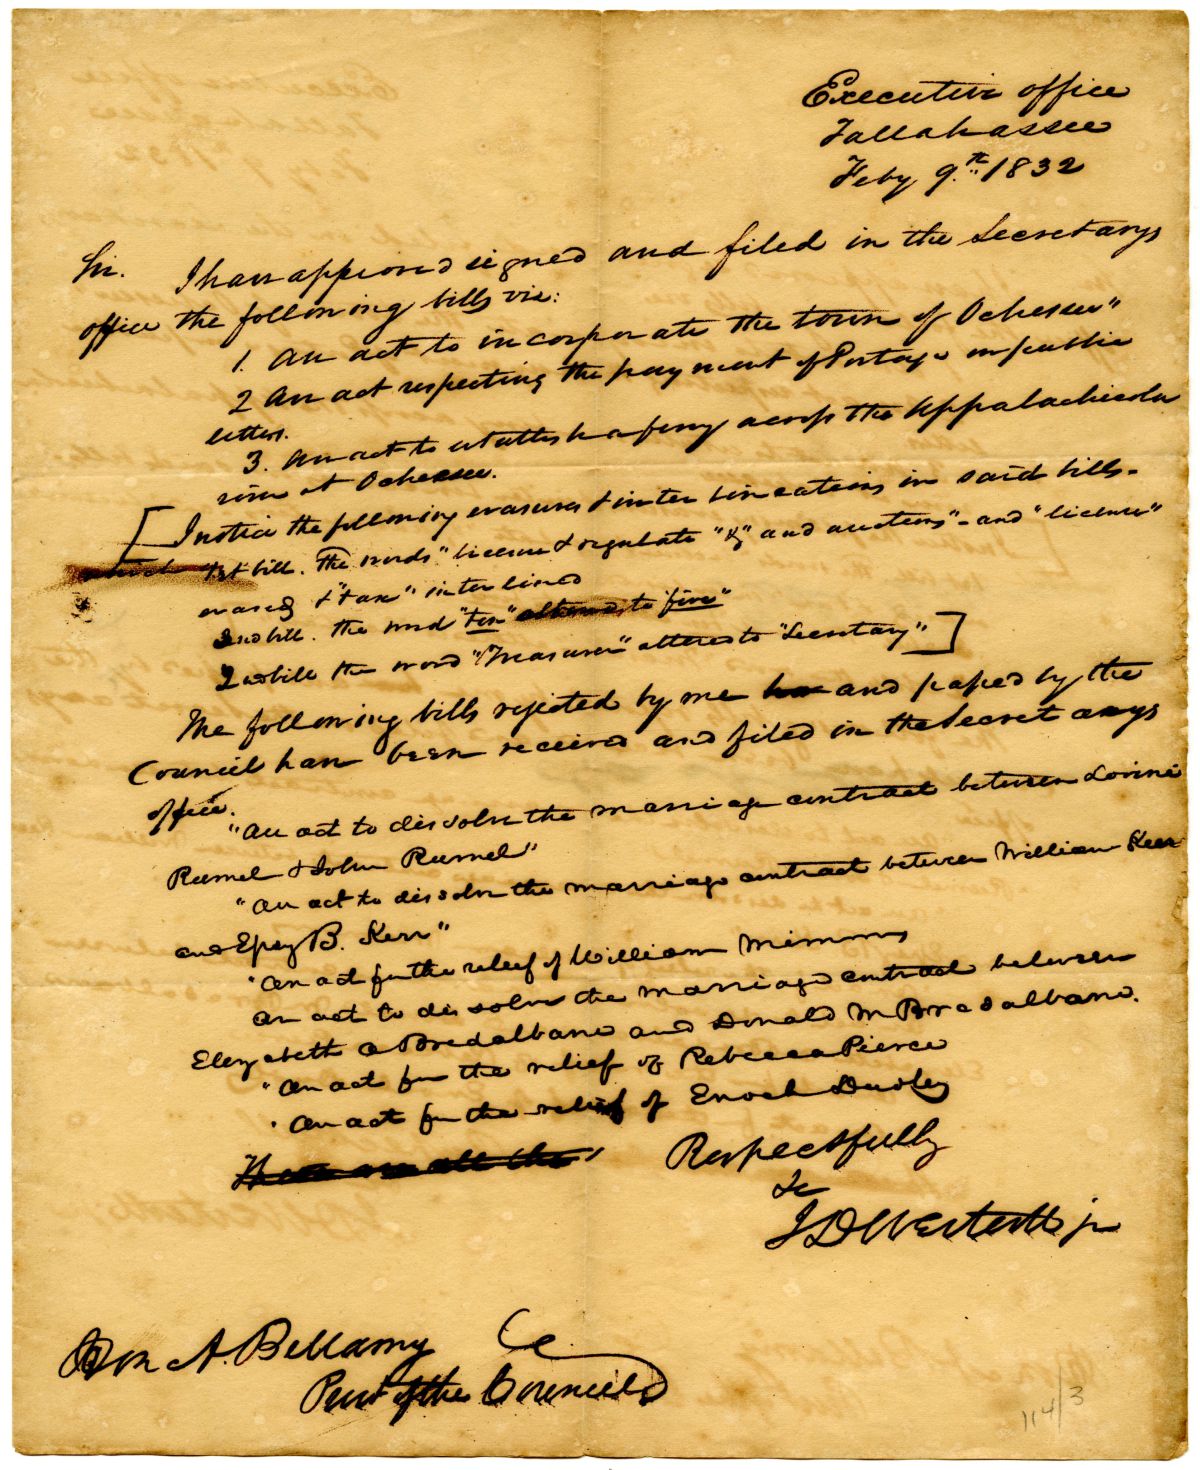 Executive office
Tallahassee
Feby 9.th 1832
Sir. I have approved signed and filed in the Secretarys
office the following bills viz:
1. An act to incorporate the town of Ochesee"
2 An act respecting the payment of Postage on public
letters.
3. An act to establish a ferry across the Appalachicola
river at Ochesee.
[I notice the following erasures & interlineations in said bills-
1st bill. The words "license & regulate" "&" and auctions" - and "license"
erased & "tax" interlined
2nd bill. the word "ten" altered to "five"
2nd bill the word "Treasurer" altered to "Secretary"]
The following bills rejected by me and passed by the
Council have been received and filed in the Secretarys
office.
"An act to dissolve the marriage contract between Lovine
Rumel & John Rumel"
"An act to dissolve the marriage contract between William Kerr
and Epsy B. Kerr"
"An act for the relief of William Mimms
An act to dissolve the marriage contract between
Elizabeth a Bredalbane and Donald M Bredalbane.
"An act for the relief of Rebecca Pierce
"An act for the relief of Enoch Dudley
These are all the
Respectfully
&c
J D Westcott jr
Hon A. Bellamy
Prest of the Council
114/3